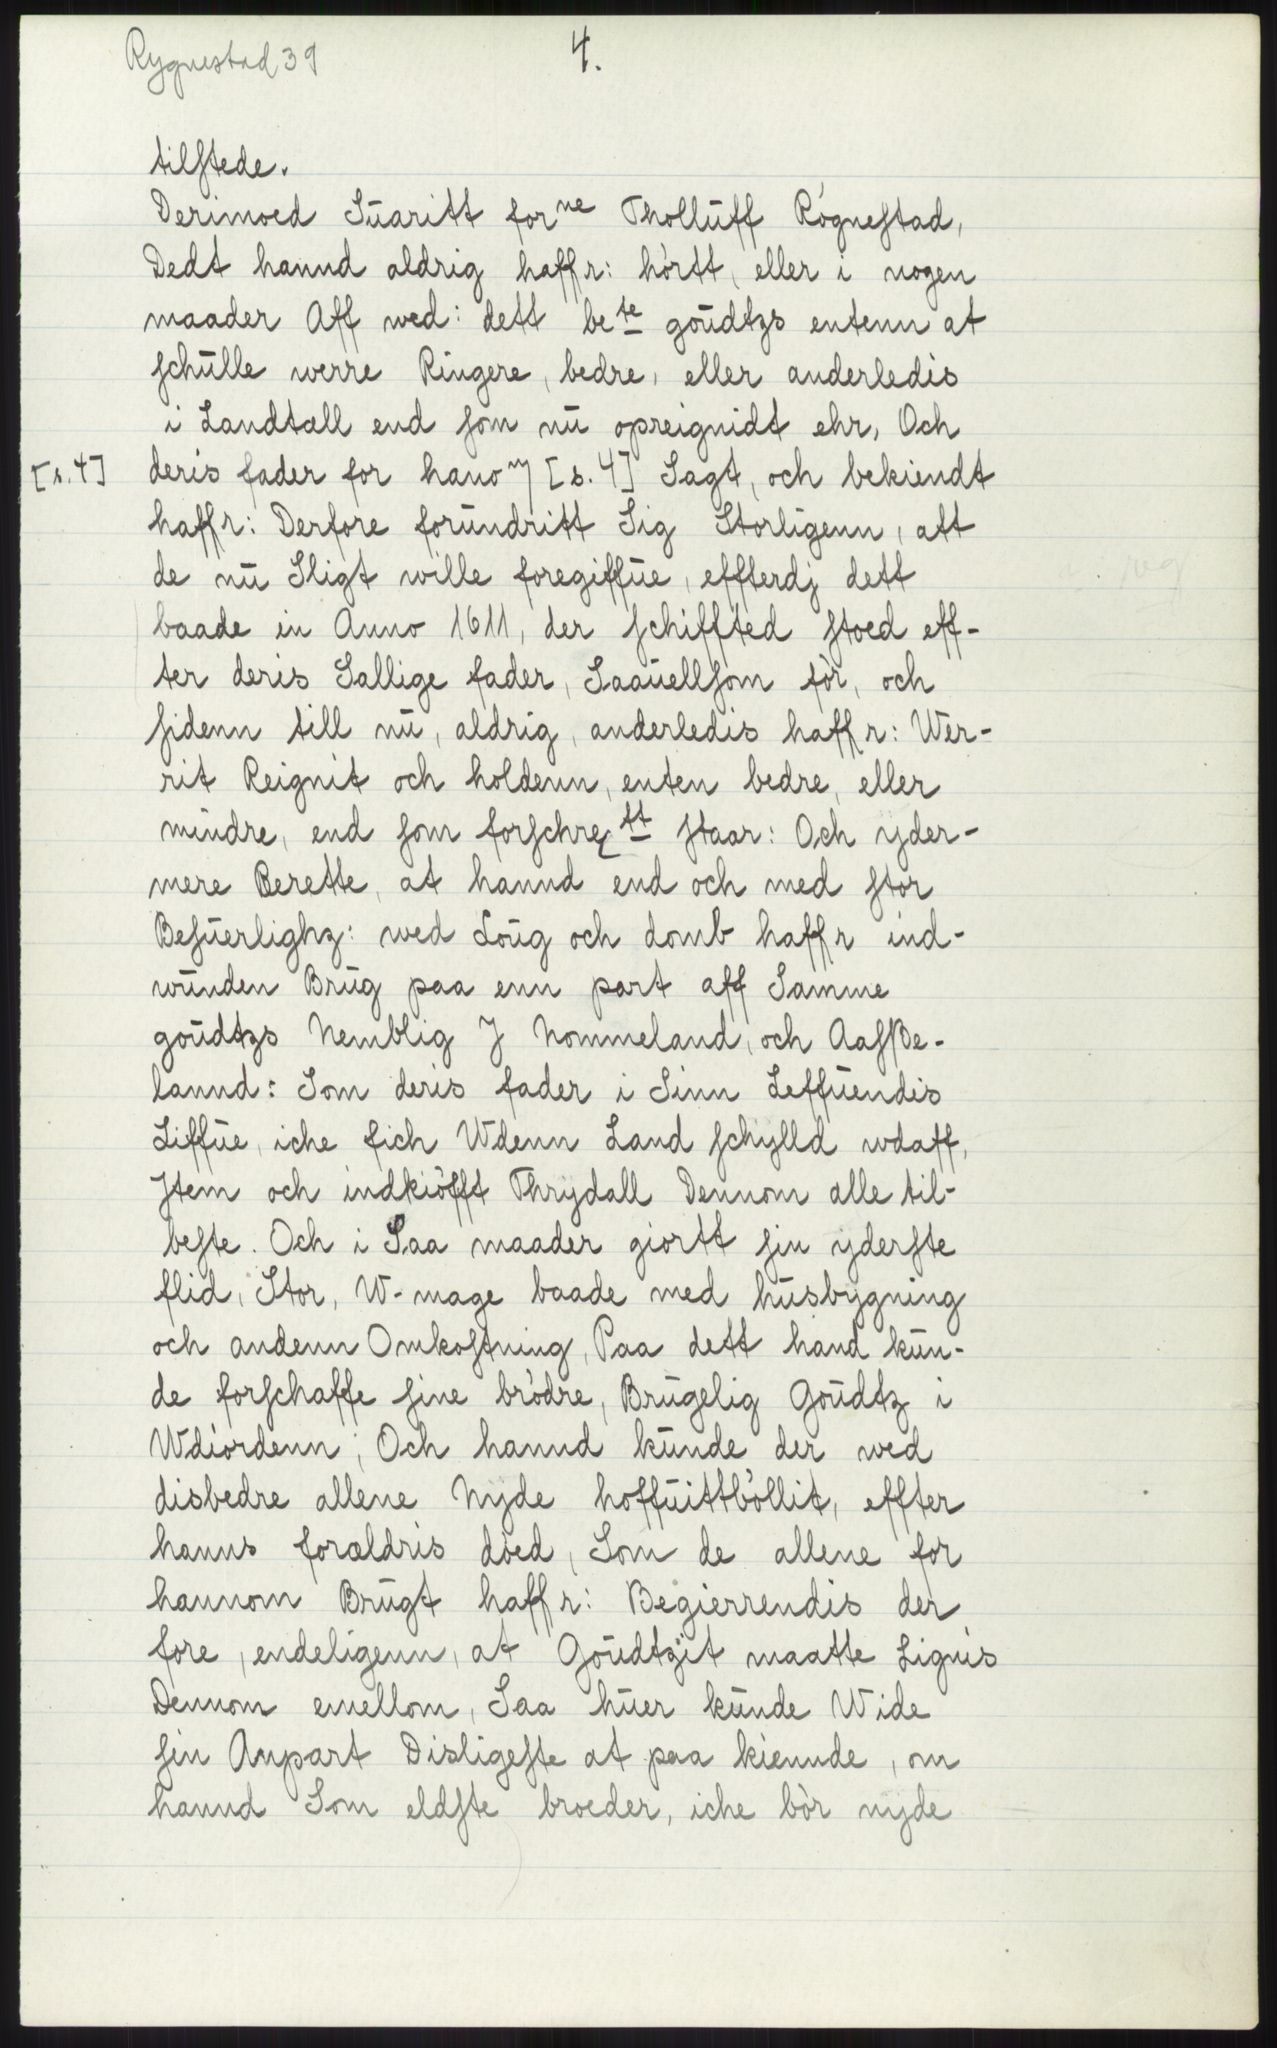 Rygnestad 39
4.
tilstede.
Derimoed Sūaritt forne Tholluff Rögnestad,
Dedt hannd aldrig haffr: hörtt, eller i nogen
maader Aff wed: dett bete goūdtzs entenn at
schūlle werre Ringere, bedre, eller anderledis
i Landtall end som nū opreignidt ehr, Och
[s. 4] deris fader for hanom [s. 4] Sagt, och bekiendt
haffr: Derfore forūndritt Sig Storligenn, att
de nū Sligt wille foregiffūe, effterdj dett
baade in Anno 1611, der schiffted stoed eff-
ter deris Sallige fader, Saaūellsom för, och
sidenn till nū, aldrig, anderledis haffr: Wer-
rit Reignit och holdenn, enten bedre, eller
mindre, end som forschrefft staar: Och yder-
mere Berette, at hannd end och med stor
Besūerlighz: wed Loūg och domb haffr ind-
wūnden Brūg paa enn part aff Samme
goūdtzs Nemblig J Nommeland, och Aasße-
lannd: Som deris fader i Sinn Leffūendis
Liffūe, iche fich Wdenn Land schylld wdaff,
Jtem och indkiöfft Thrydall Dennom alle til-
beste. Och i Saa maader giortt sin yderste
flid, Stor, W-mage baade med hūsbygning
och andenn Omkostning, Paa dett hand kūn-
de forschaffe sine brödre, Brūgelig Goūdtz i
Wdiordenn, Och hannd kūnde der wed
disbedre allene Nyde hoffūittböllit, effter
hanns forældris död, Som de allene for
hannom Brūgt haffr: Begierrendis der
fore, endeligenn, at Goūdtzit maatte Lignis
Dennom emellom, Saa hūer kūnde Wide
sin Anpart Disligeste at paa kiennde, om
hannd Som eldste broeder, iche bör nyde